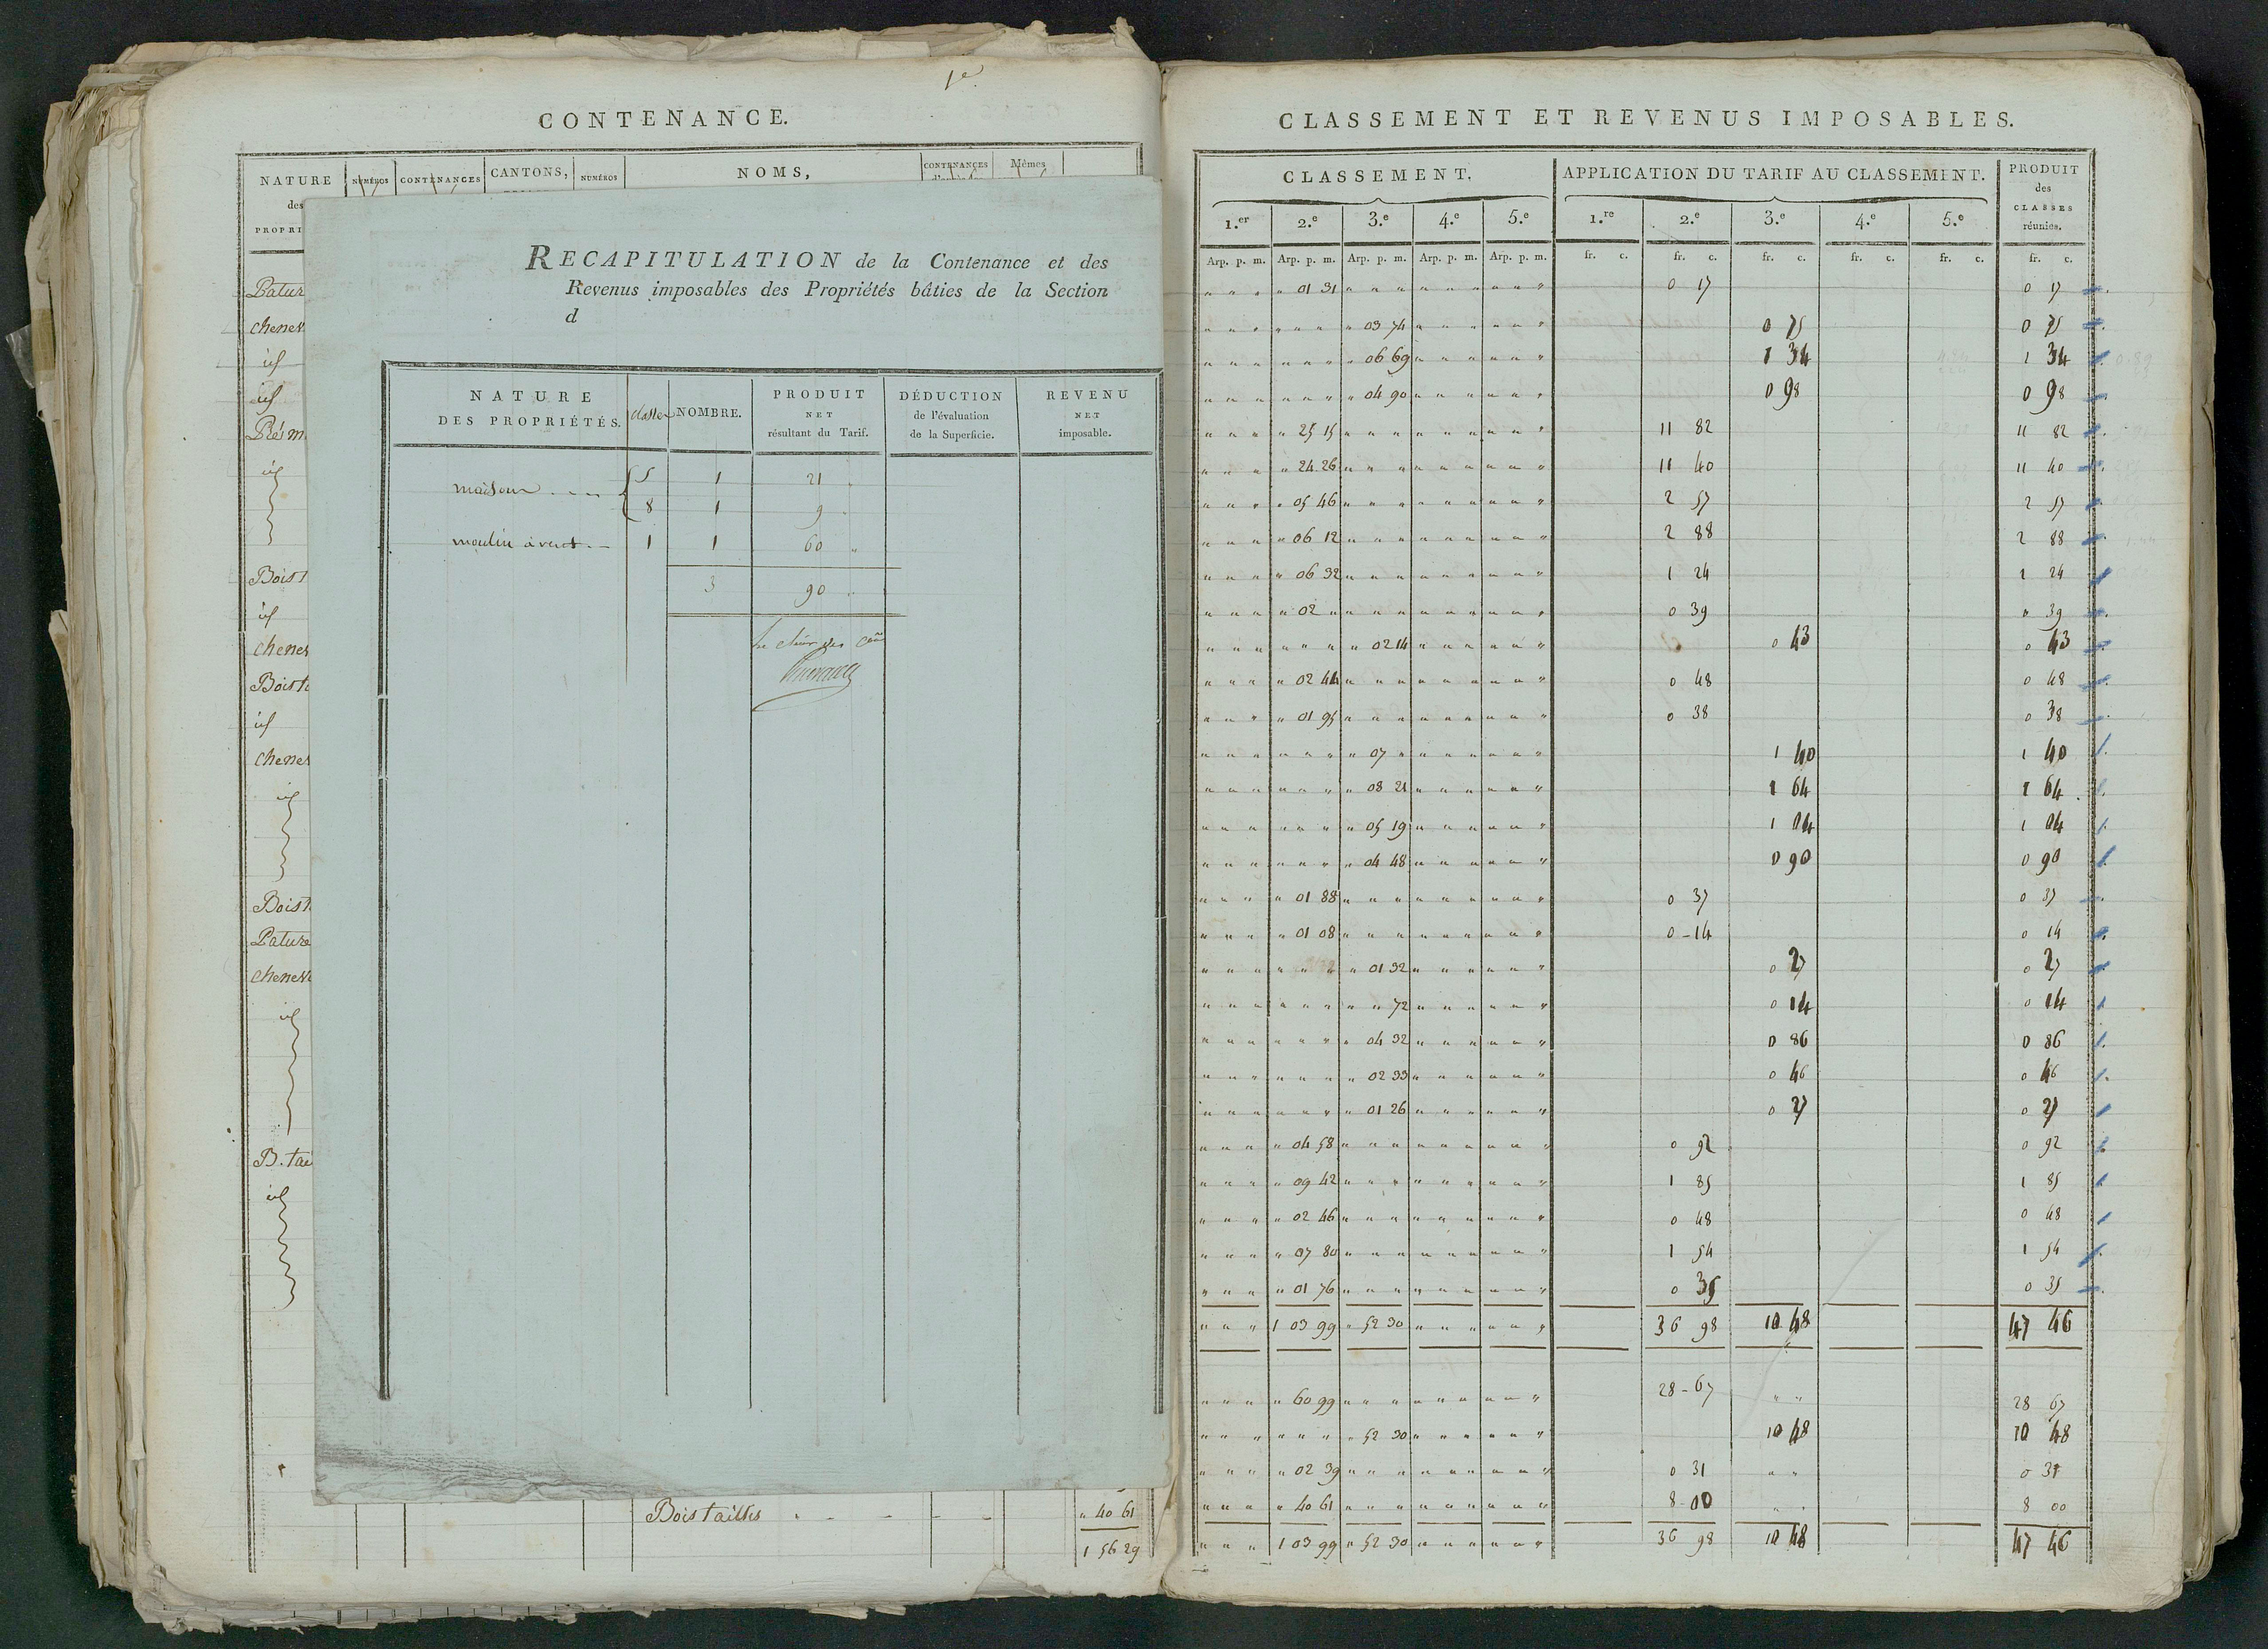 1e
CONTENANCE.
NATURE
des
PROPRI
NUMÉROS
CONTENANCES
CANTONS,
NUMÉROS
NOMS,
CONTENANCES
Mêmes
Patur
chenev
id
id
Pré m
id
Bois t
id
chenev
Bois t
id
chenev
id
Bois t
Pature
chenev
id
B. tai
id
RECAPITULATION de la Contenance et des
Revenus imposables des Propriétés bâties de la Section
d
NATURE DES PROPRIÉTÉS. classes NOMBRE. PRODUIT NET résultant du Tarif. DÉDUCTION de l'évaluation de la Superficie. REVENU NET imposable.
maisons 5 1 21 "
8 1 9 "
moulin à vent 1 1 60 "
3 90 "
Bois taillis " 40 61
1 56 29
CLASSEMENT ET REVENUS IMPOSABLES.
CLASSEMENT. APPLICATION DU TARIF AU CLASSEMENT. PRODUIT des CLASSES réunies.
1.er 2.e 3.e 4.e 5.e 1.re 2.e 3.e 4.e 5.e
Arp. p. m. Arp. p. m. Arp. p. m. Arp. p. m. Arp. p. m. fr. c. fr. c. fr. c. fr. c. fr. c. fr. c.
01 31 0 17 0 17
03 74 0 75 0 75
06 69 1 34 1 34
04 90 0 98 0 98
25 15 11 82 11 82
24 26 11 40 11 40
05 46 2 57 2 57
06 12 2 88 2 88
06 32 1 24 1 24
02 " 0 39 0 39
02 14 0 43 0 43
02 44 0 48 0 48
01 95 0 38 0 38
07 " 1 40 1 40
08 21 1 64 1 64
05 19 1 04 1 04
04 48 0 90 0 90
01 88 0 37 0 37
01 08 0 - 14 0 14
01 32 0 27 0 27
" 72 0 14 0 14
04 32 0 86 0 86
02 33 0 46 0 46
01 26 0 27 0 27
04 58 0 92 0 92
09 42 1 85 1 85
02 46 0 48 0 48
07 80 1 54 1 54
01 76 0 35 0 35
1 03 99 " 52 30 36 98 10 48 47 46
" 60 99 28 - 67 " " 28 67
" 52 30 10 48 10 48
" 02 39 0 31 " " 0 31
" 40 61 8 - 00 " " 8 00
1 03 99 " 52 30 36 98 10 48 47 46